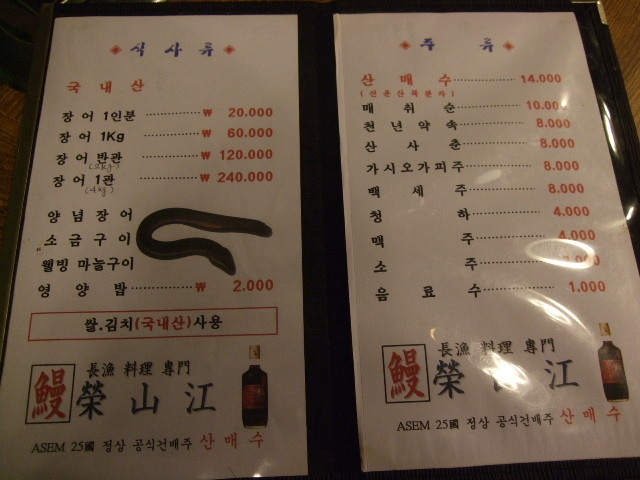 식 사 류
국 내 산
장 어 1인분 ₩ 20.000
장 어 1Kg ₩ 60.000
장 어 반관 ₩ 120.000
(2kg)
장 어 1관 ₩ 240.000
(4kg)
양 념 장 어
소 금 구 이
웰빙 마늘구이
영 양 밥 ₩ 2.000
쌀.김치(국내산)사용
長漁 料理 專門
鰻 榮 山 江
ASEM 25國 정상 공식건배주 산 매 수
주 류
산 매 수 14.000
(선운산복분자)
매 취 순 10.000
천 년 약 속 8.000
산 사 춘 8.000
가 시 오 가 피 주 8.000
백 세 주 8.000
청 하 4.000
맥 주 4.000
소 주 .000
음 료 수 1.000
長漁 料理 專門
鰻 榮 山 江
ASEM 25國 정상 공식건배주 산 매 수